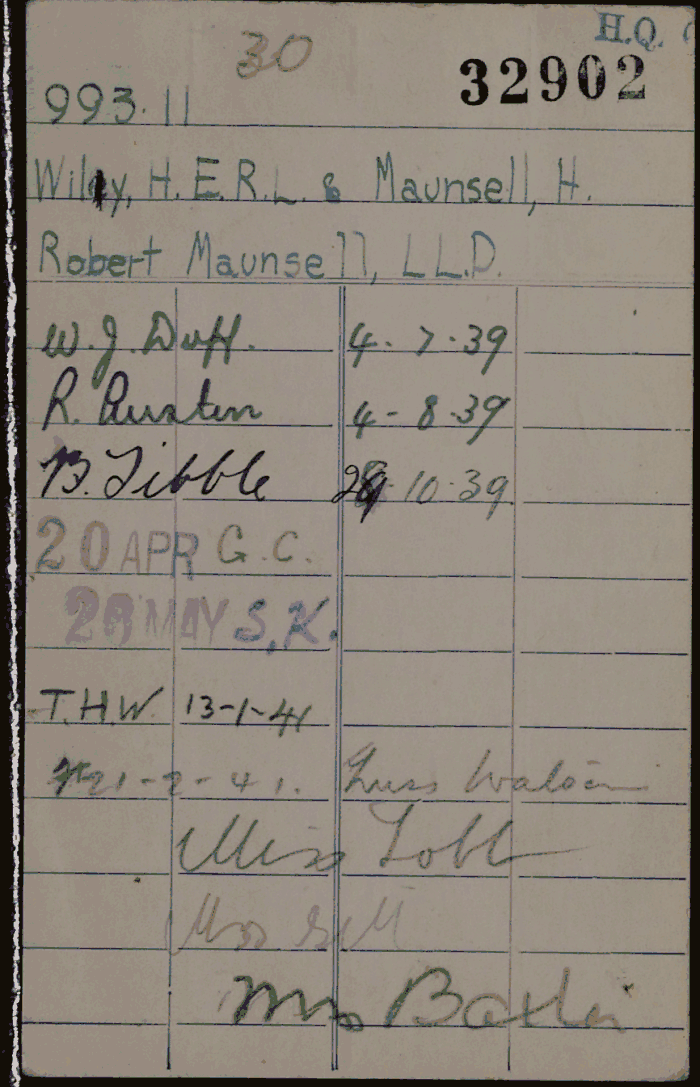 30 H.Q.
32902
993.11
Wily, H.E.R.L. & Maunsell, H.
Robert Maunsell, LL.D.
W.J. Duff. 4-7-39
R. Ruston 4-8-39
B. Tibble 28-10-39
20 APR G.C.
28 MAY S.K.
T.H.W. 13-1-41
21-2-41. Miss Watson
Miss Lobb
Mrs Gill
Mrs Baxter